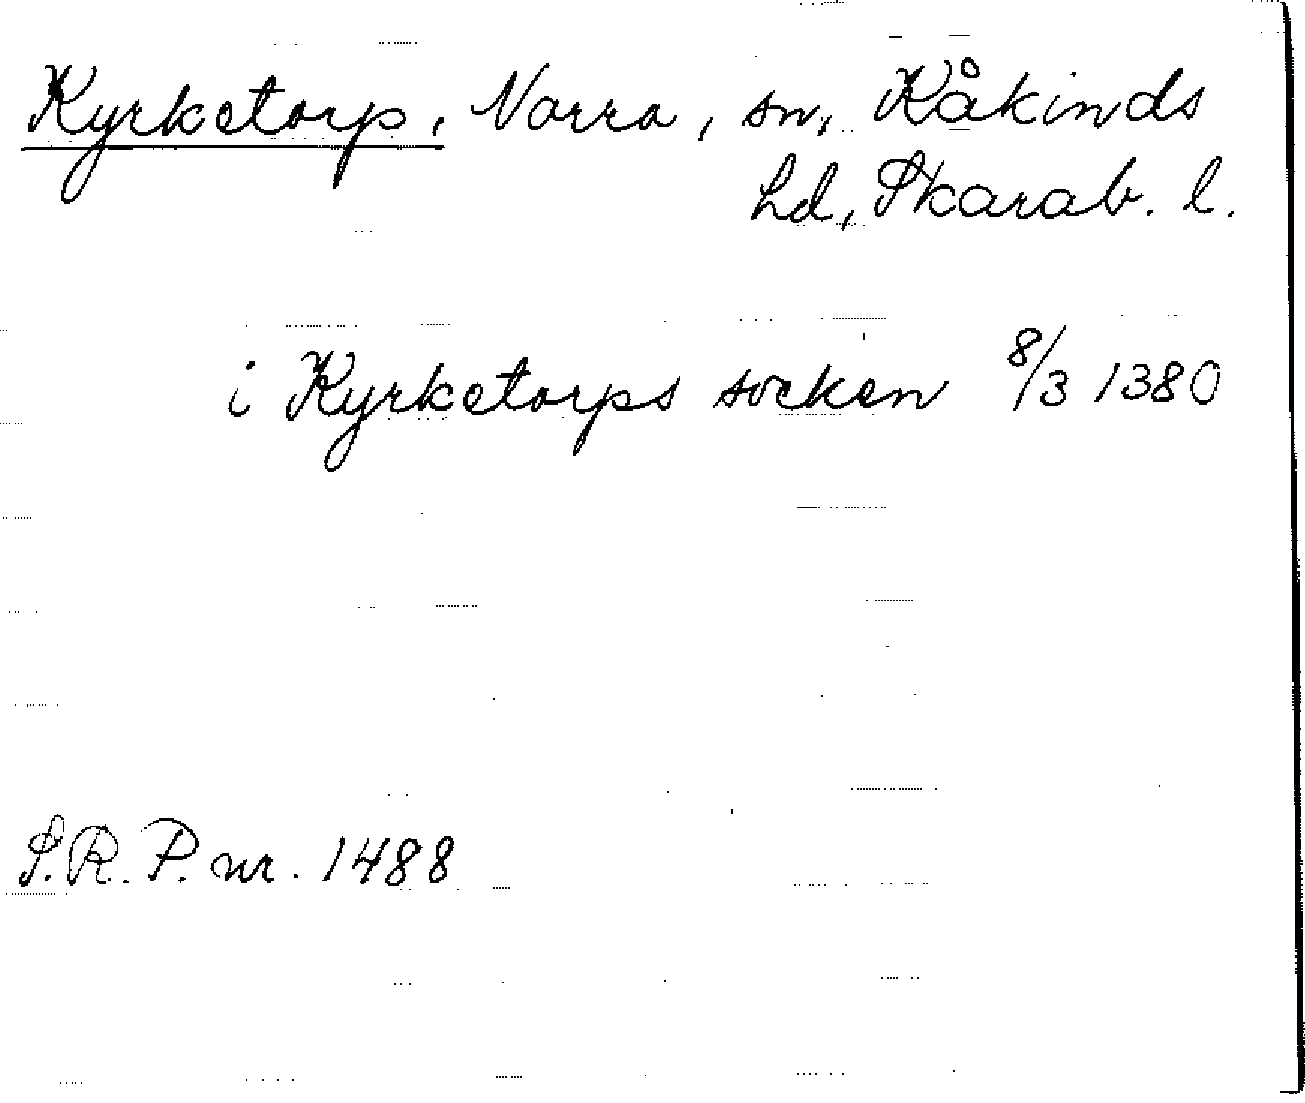 Kyrketorp, Norra, sn, Kåkinds
hd, Skarab. l.
i Kyrketorps socken 8/3 1380
S.R.P. nr. 1488